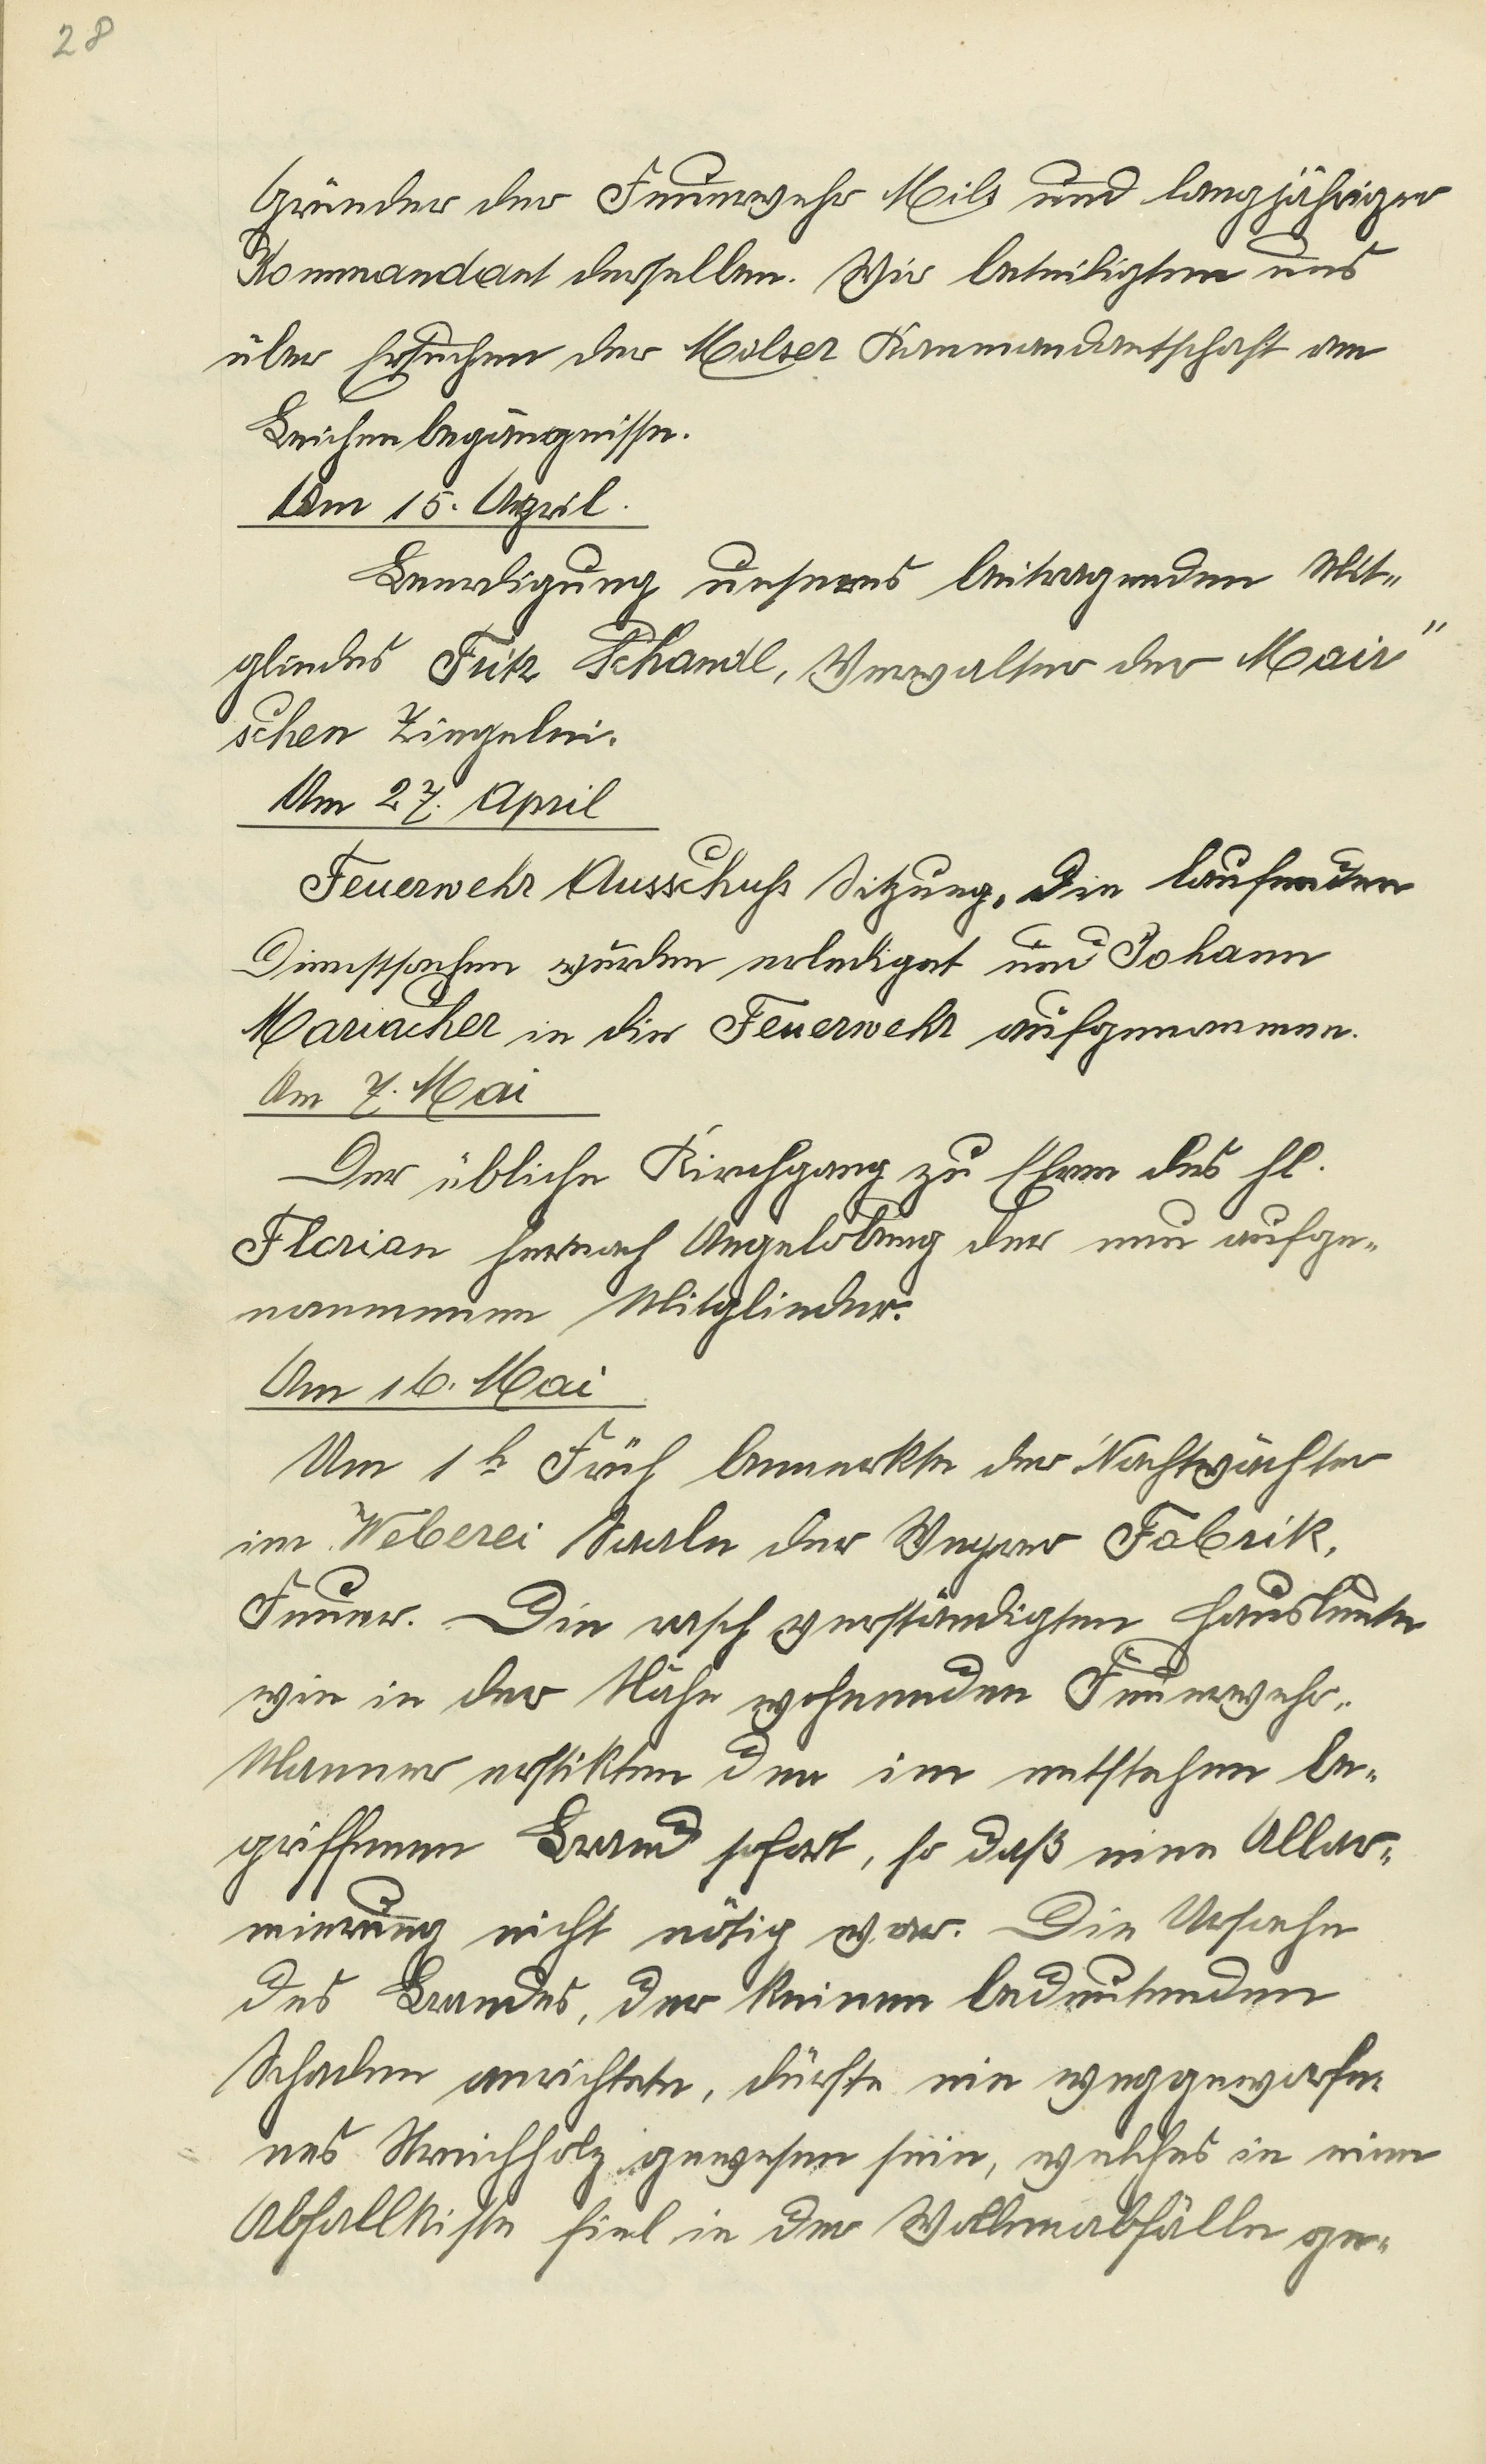 28
Gründer der Feuerwehr Mils und langjähriger
Kommandant derselben. Wir beteiligten uns
über Ersuchen der Milser Kommandantschaft am
Leichenbegängnisse.
Am 15. April.
Beerdigung unseres beitragenden Mit-
gliedes Fritz Schandl, Verwalter der Mair"
schen Ziegelei.
Am 27. April
Feuerwehr Ausschuß Sitzung. Die laufenden
Dienstsachen wurden erledigt und Johann
Mariacher in die Feuerwehr aufgenommen.
Am 7. Mai
Der übliche Kirchgang zu Ehren des hl.
Florian hernach Angelobung der neu aufge-
nommenen Mitglieder.
Am 16. Mai
Um 1 h Früh bemerkte der Nachtwächter
im Weberei Saale der Weyrer Fabrik,
Feuer. Die rasch verständigten Hausleute
wie in der Nähe wohnenden Feuerwehr-
Männer erstikten den im entstehen be-
griffenen Brand sofort, so daß eine Allar-
mierung nicht nötig war. Die Ursache
des Brandes, der keinen bedeutenden
Schaden anrichtete, dürfte ein weggeworfe-
nes Streichholz gewesen sein, welches in eine
Abfallkiste fiel in der Wollenabfälle ge-